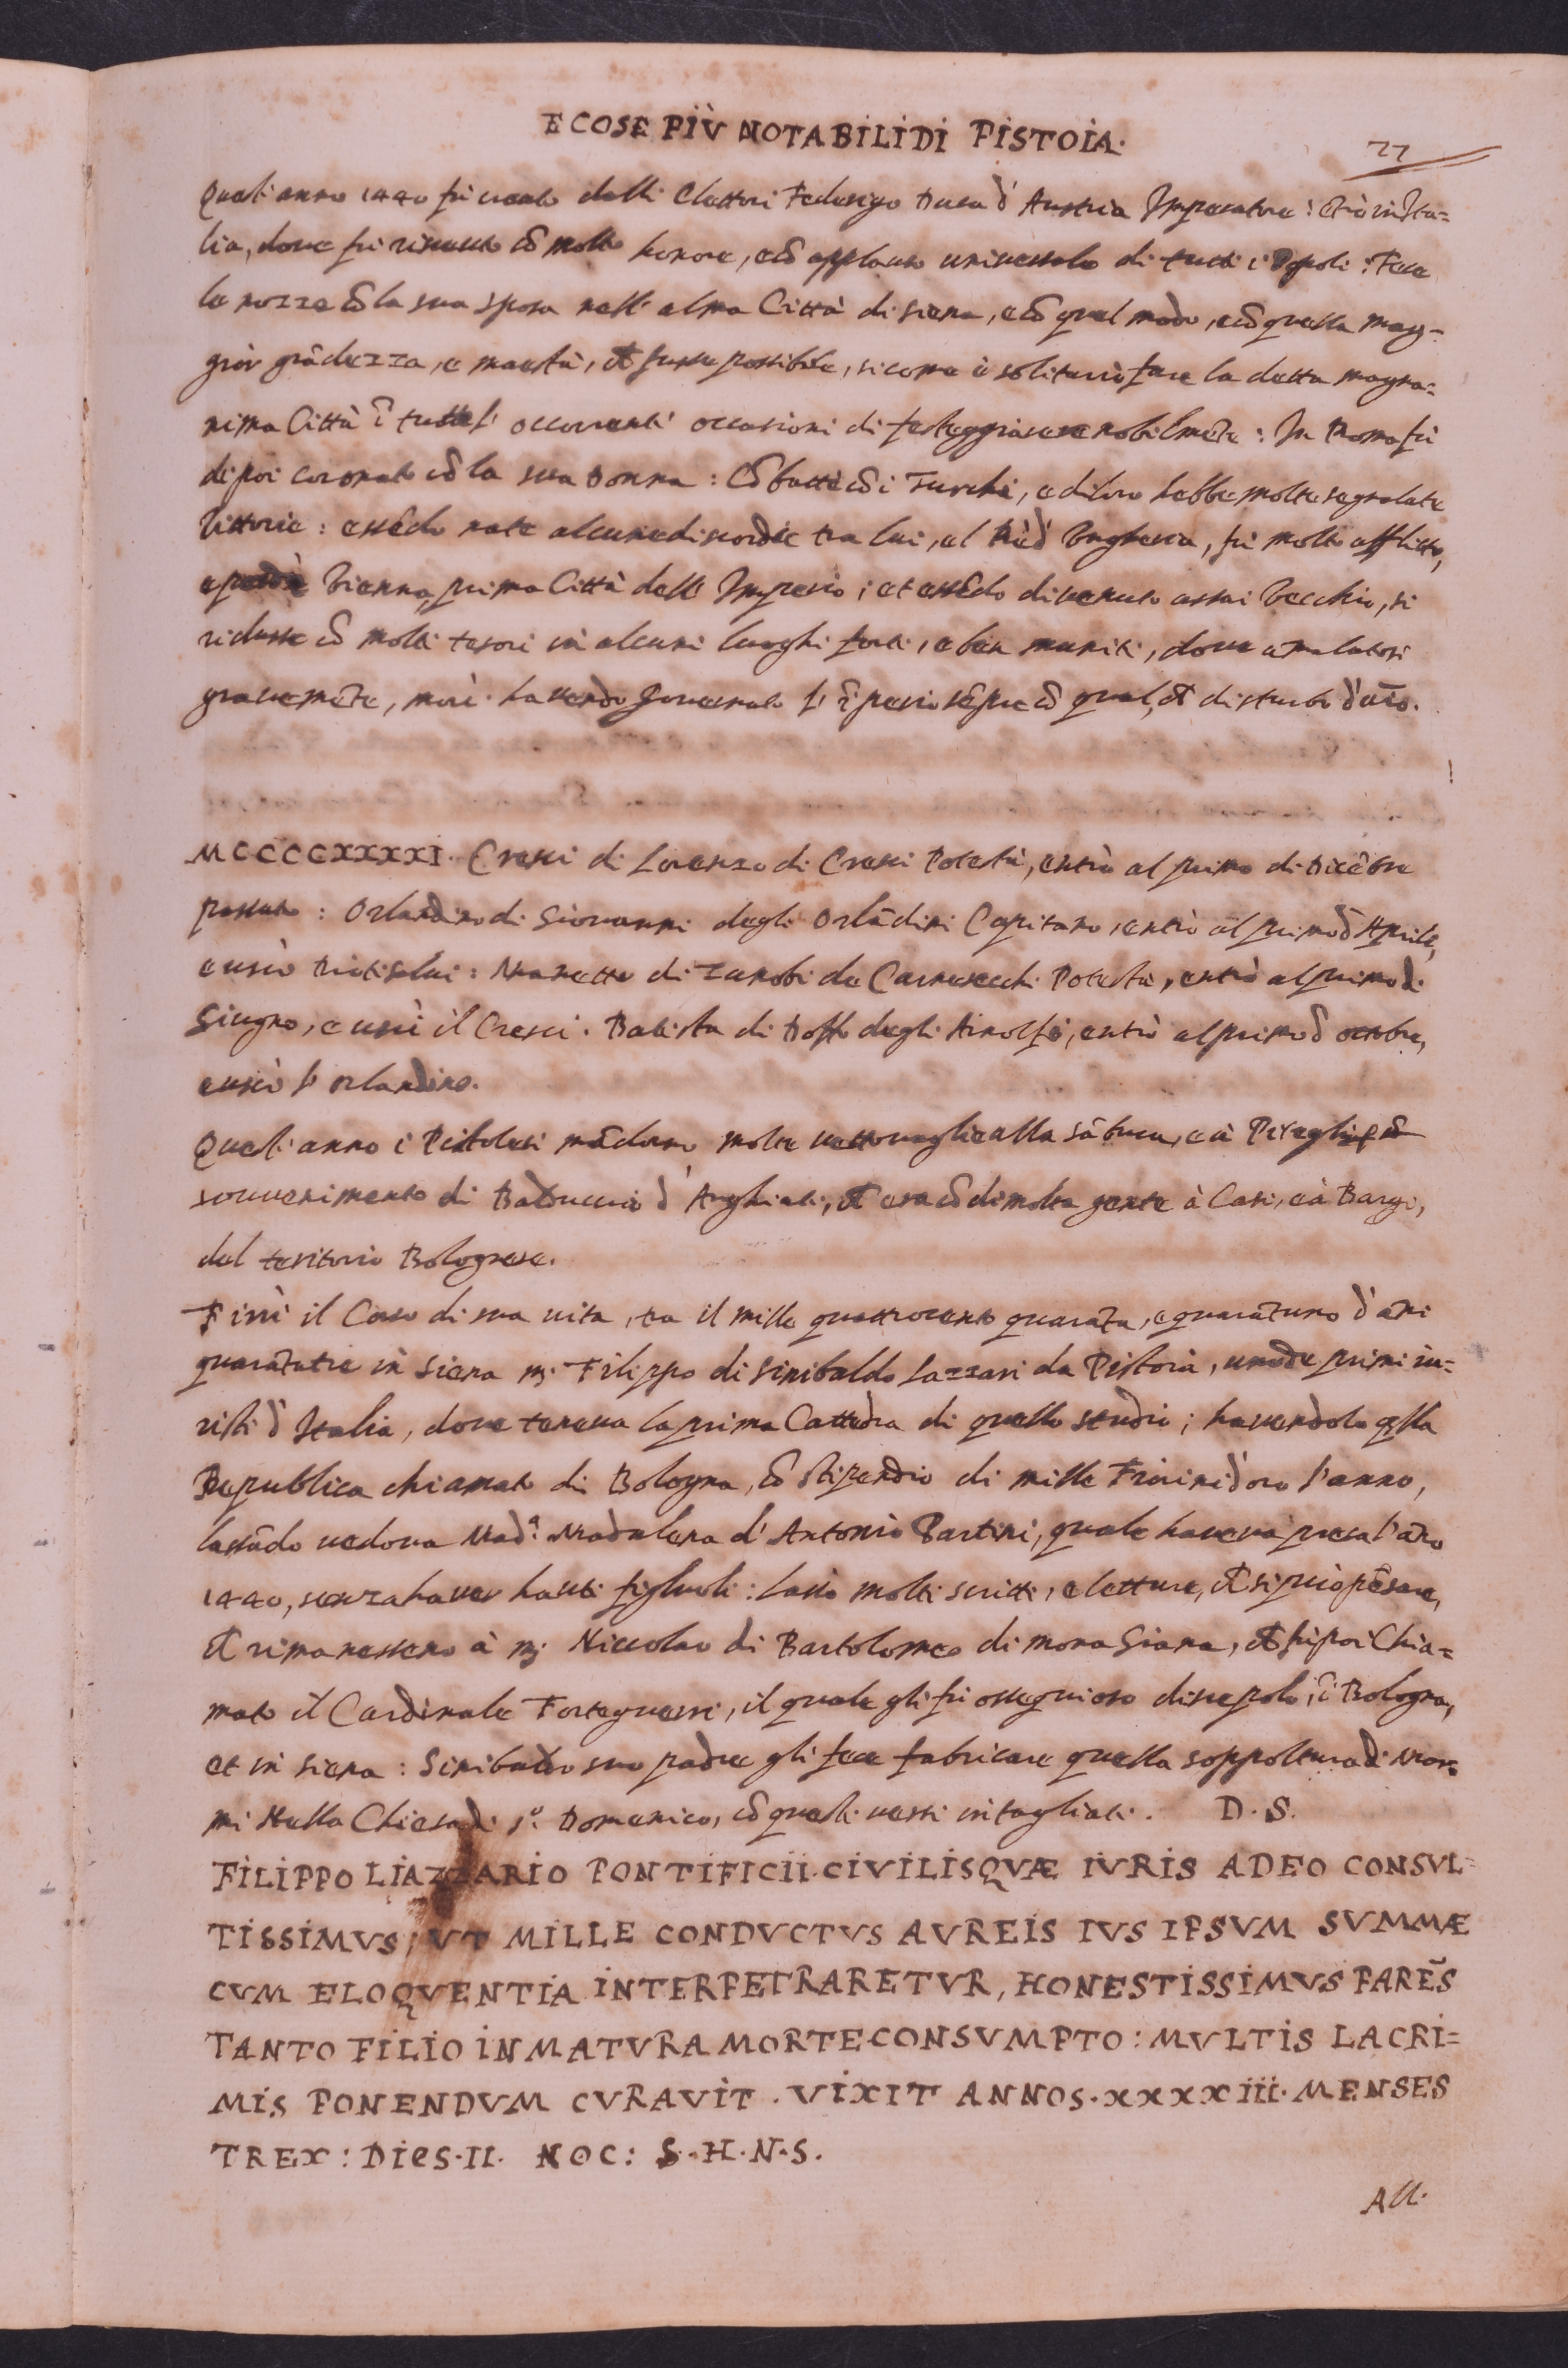 E COSE PIÙ NOTABILI DI PISTOIA.
77
Quest'anno 1440 fù creato dalli Elettori Federigo Duca d' Austria Imperatore: in Ita=
lia, dove fù ricevuto cō molto honore, e cō applauso universale di tutti i Popoli: Fece
le nozze cō la sua sposa nell' alma Città di siena, e cō quel modo, e cō quella mag=
giōr grādezza, e maestà, fusse possibile, si come è solita fare la detta magna=
nima Città ī tutte l' occorrenti occasioni di festeggiare nobilmēte: In Roma fù
di poi coronato cō la sua Donna: Cōbattè cō i Turchi, e di loro hebbe molte segnalate
Vittorie: essēdo nate alcune discordie tra lui, e l Rè d' Ungheria, fù molto afflitto,
e perdè Vienna, prima Città dell' Imperio; et essēdo divenuto assai Vecchio, si
ridusse cō molti tesori in alcuni luoghi forti, e ben muniti, dove amalatosi
gravemēte, morì. havendo governato l' īperio sēpre cō qual, disturbo d'
MCCCCXXXXI. Cresci di Lorenzo di Cresci Potestà, entrò al primo di Dicēbre
passato: Orlandino di Giovanni degli Orlādini Capitano, entrò al primo d' Aprile,
e uscì : di Zanobi de Carnesecchi Potestà, entrò al primo di
Giugno, e uscì il Cresci. Batista di Doffo degli Arnolfi, entrò al primo d' ottobre,
e uscì l' orlandino.
Quest' anno i Pistolesi mādorno molte vettovaglie alla Sābuca, e à Piteglio
sovvenimento di d' Anghiari, era cō di molta gente à Casi, e à Bargi,
del teritorio Bolognese.
Finì il Corso di sua vita, tra il mille quattrocento quarāta, e quarātuno d' āni
quarātatre in Siena m. Filippo di Sinibaldo Lazzari da Pistoia, uno de primi iu=
risti d' Italia, dove teneva la prima Cattedra di quello studio; havendolo qlla
Republica chiamato di Bologna, cō stipendio di mille Fiorini d'oro l'anno,
lassādo vedova Mad.ª Madalena d' Antonio Partini, quale haveva presa l' āno
1440, senza haver hauti figluoli: lassò molti scritti, e letture, si può pēsare,
rimanessero à m. Niccolao di Bartolomeo di mona Giana, fù poi Chia=
mato il Cardinale Forteguerri, il quale gli fù ossequioso discepolo, ī Bologna,
et in Siena: Sinibaldo suo padre gli fece fabricare quella soppoltura di Mar=
mi Nella Chiesa di S.º Domenico, cō questi versi intagliati. D. S.
FILIPPO LIAZZARIO PONTIFICII CIVILISQVÆ IVRIS ADEO CONSVL=
TISSIMVS, UT MILLE CONDVCTVS AVREIS IVS IPSVM SVMMÆ
CVM ELOQVENTIA INTERPETRARETVR, HONESTISSIMVS PARĒS
TANTO FILIO INMATVRA MORTE CONSVMPTO: MVLTIS LACRI=
MIS PONENDVM CVRAVIT. VIXIT ANNOS. XXXXIII. MENSES
TREX: DIES. II. NOC: S. H. N. S.
All.